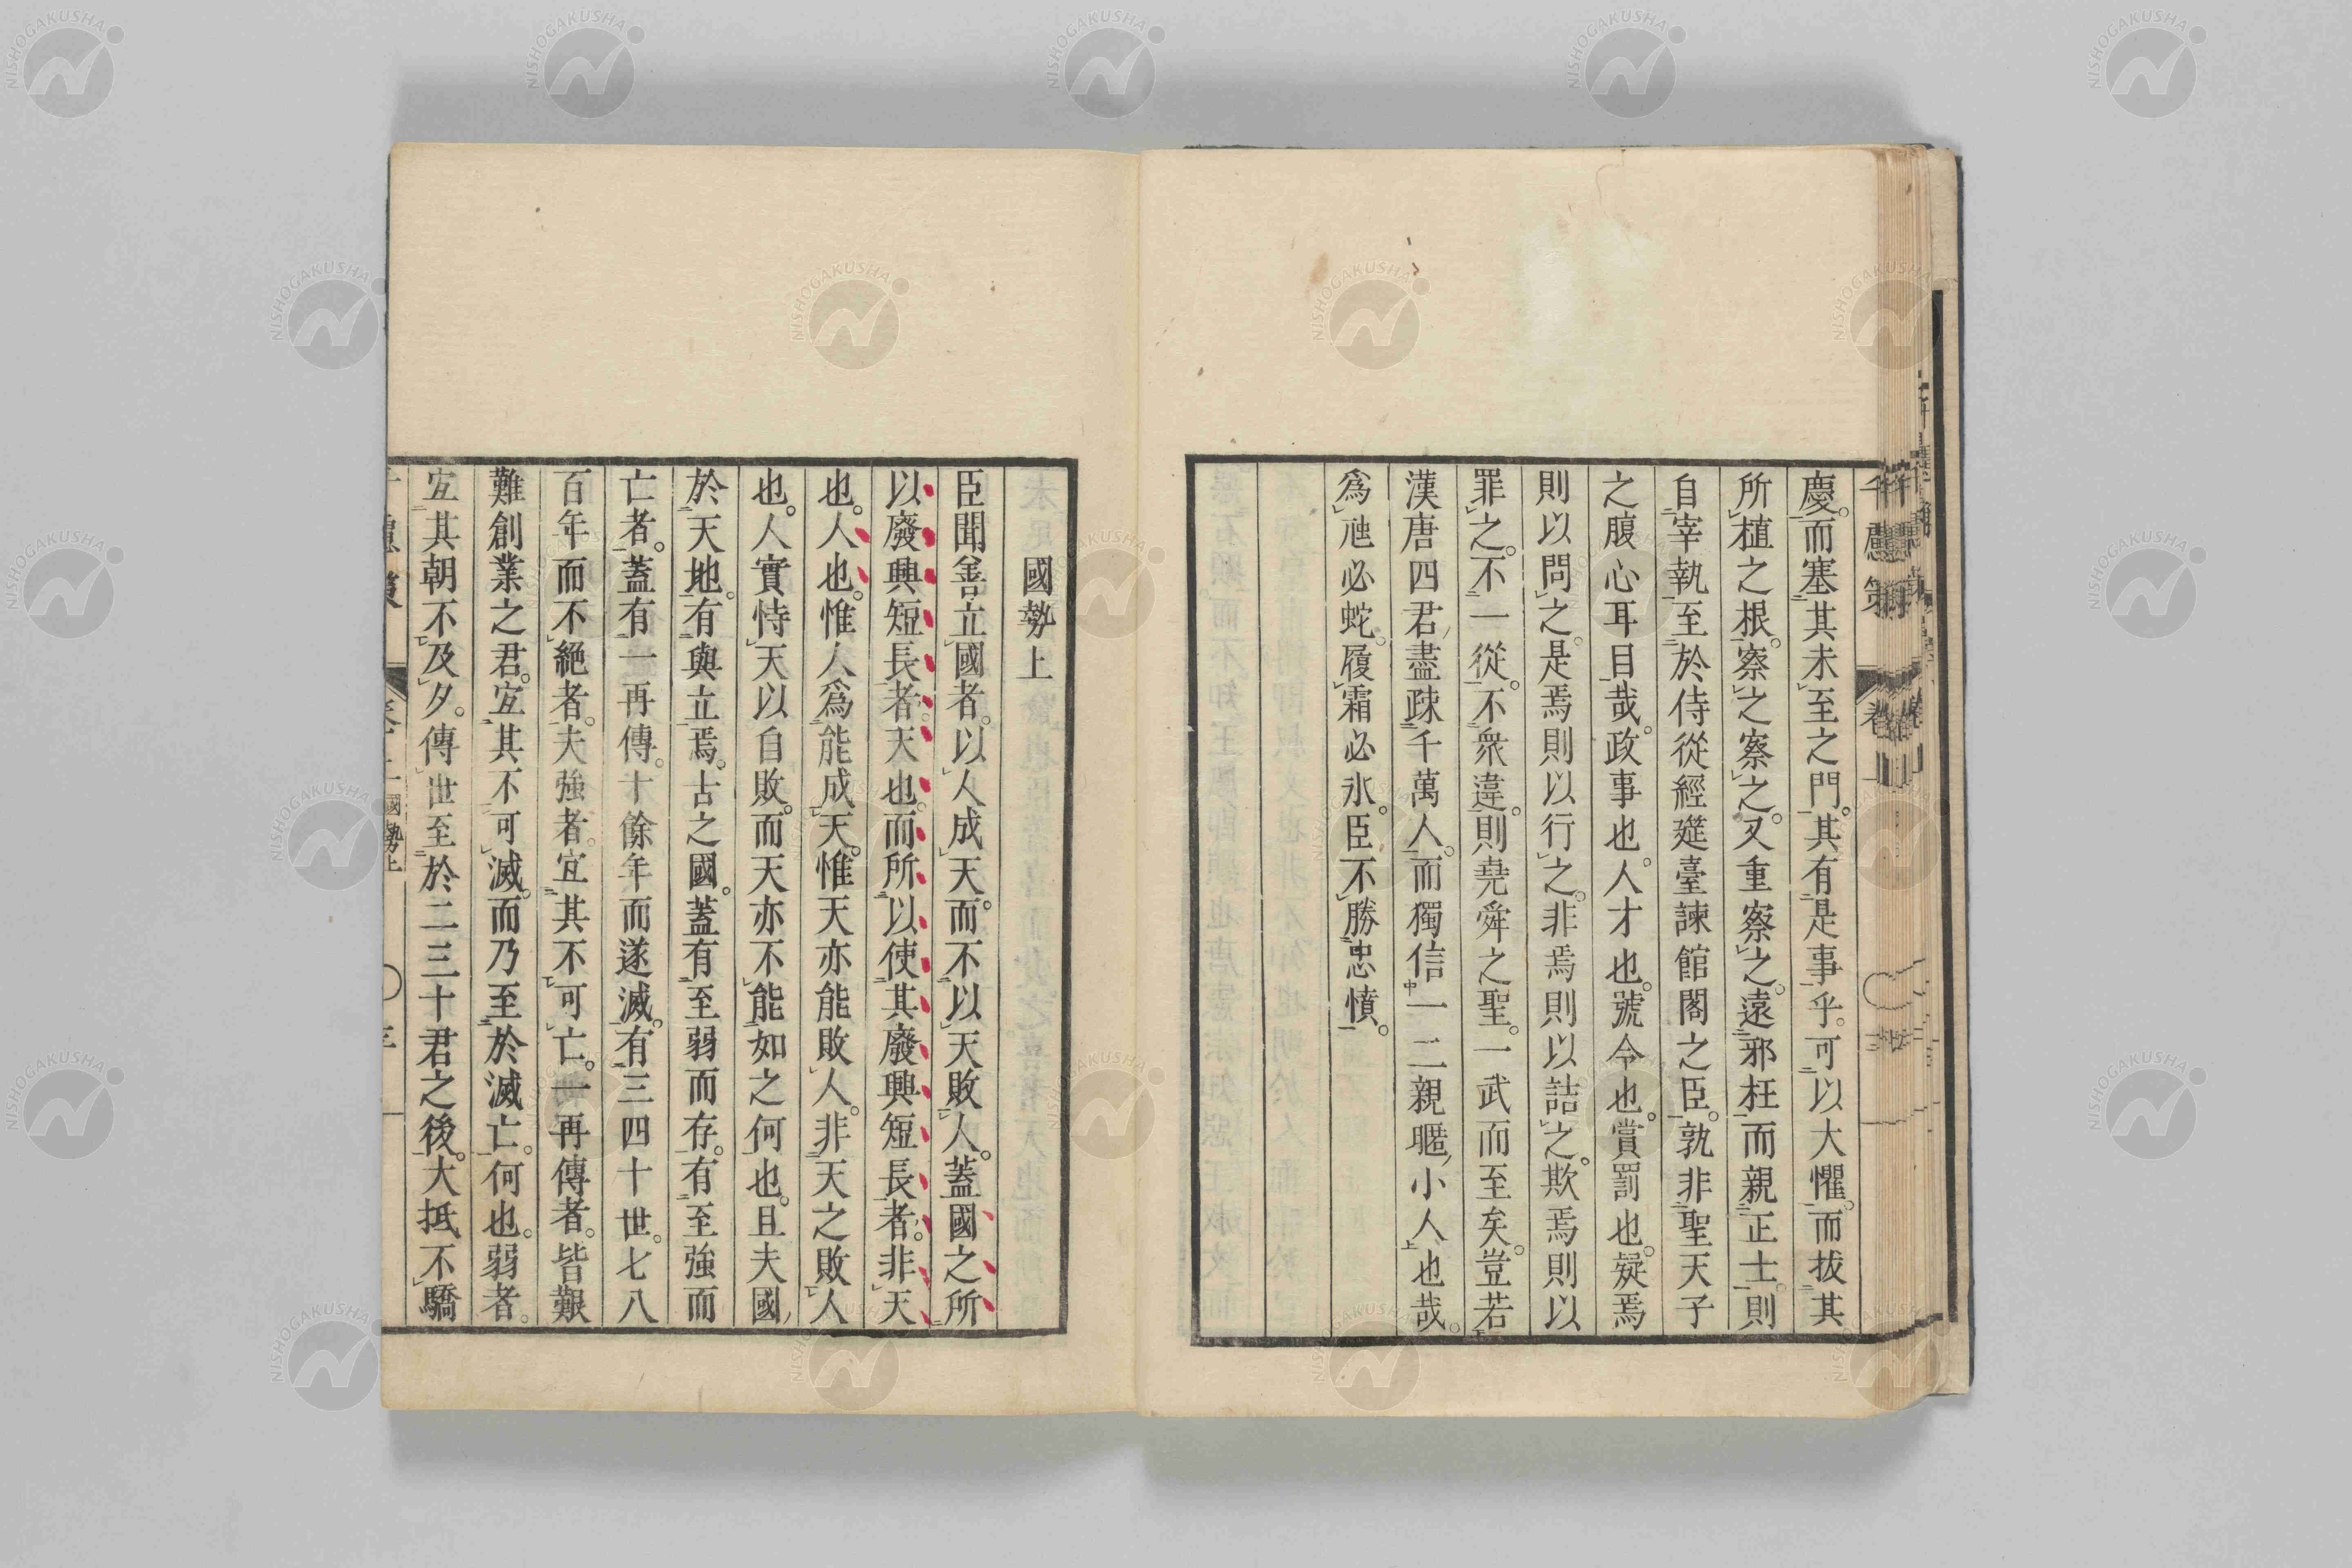 慶。而塞其未至之門。其有是事乎。可以大懼。而拔其
所植之根。察之察之。又重察之。遠邪枉而親正士。則
自宰執至於侍從經筵臺諫館閣之臣。孰非聖天子
之腹心耳目哉。政事也。人才也。號令也。賞罰也。疑焉
則以問之。是焉則以行之。非焉則以詰之。欺焉則以
罪之。不一從。不衆違。則堯舜之聖。一武而至矣。豈若
漢唐四君盡疎千萬人。而獨信一二親暱小人也哉。
爲虺必蛇。履霜必氷。臣不勝忠憤。
國勢上
臣聞善立國者。以人成天。而不以天敗人。蓋國之所
以廢興短長者。天也。而所以使其廢興短長者。非天
也。人也。惟人爲能成天。惟天亦能敗人。非天之敗人
也。人實恃天以自敗。而天亦不能如之何也。且夫國
於天地。有與立焉。古之國。蓋有至弱而存。有至強而
亡者。蓋有一再傳。十餘年而遂滅。有三四十世。七八
百年而不絕者。夫強者。宜其不可亡。一再傳者。皆艱
難創業之君。宜其不可滅。而乃至於滅亡。何也。弱者。
宜其朝不及夕。傳世至於二三十君之後。大抵不驕
千慮策
國勢上
NISHOGAKUSHA